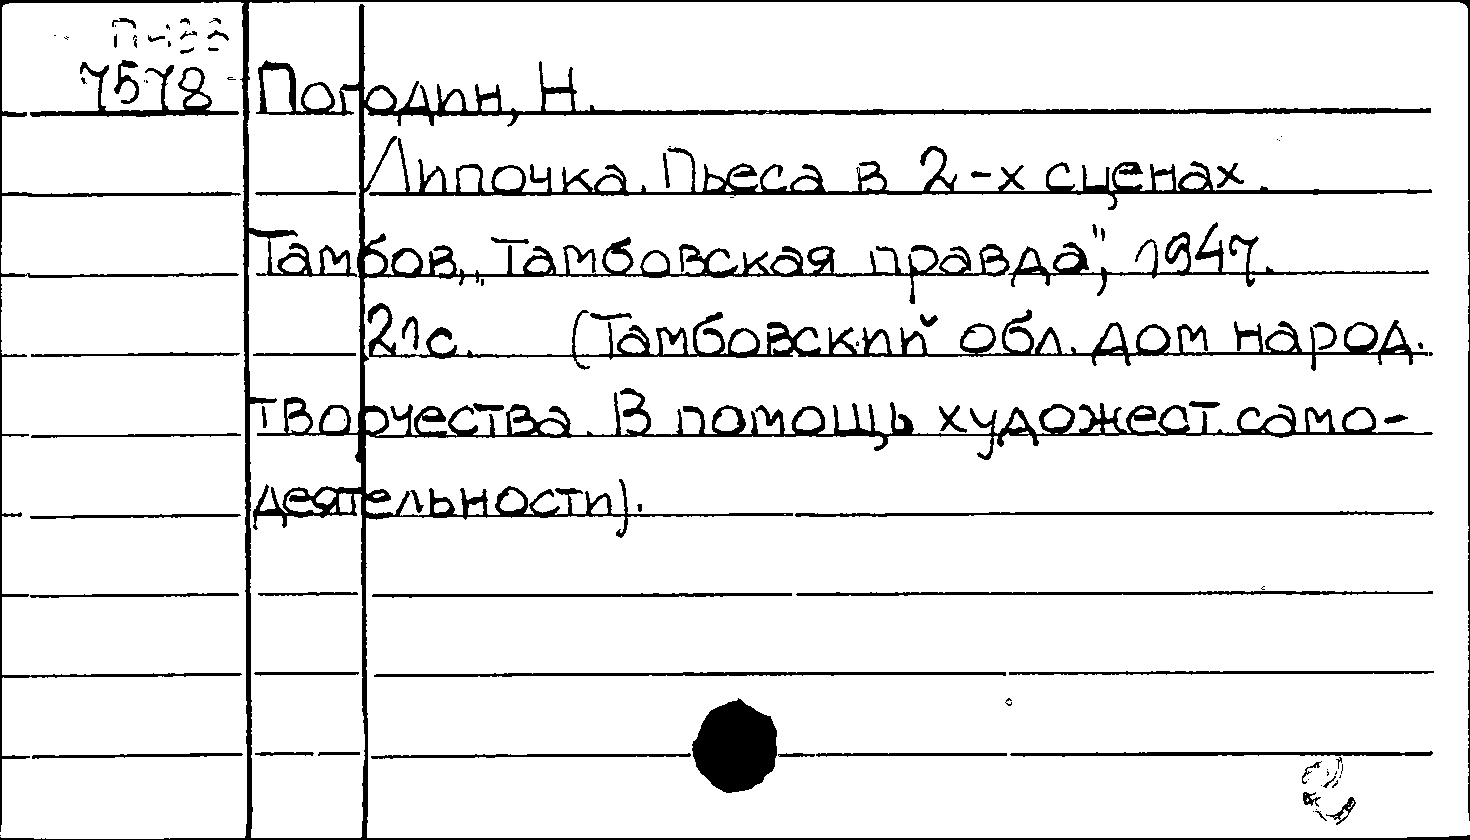 7578 Погодин, Н.
Липочка. Пьеса в 2-х сценах.
Тамбов, „Тамбовская правда", 1947.
21 с. (Тамбовский обл. дом народ.
творчества. В помощь художест. само-
деятельности).